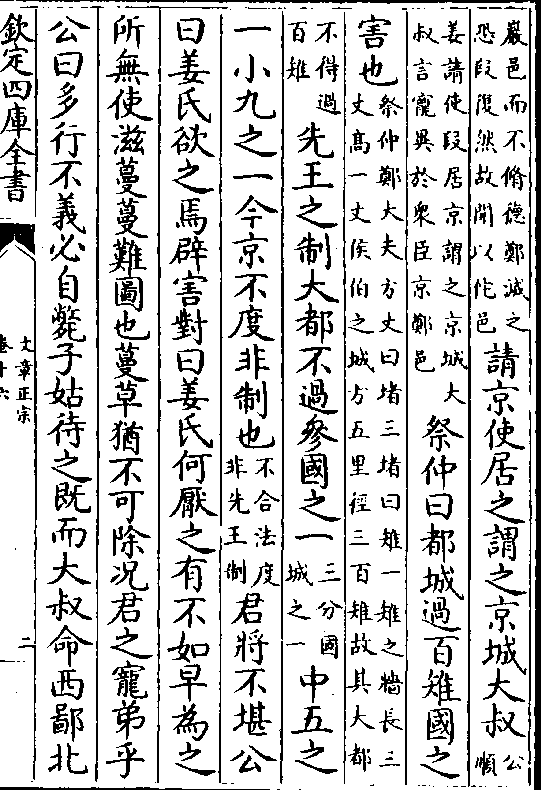 巖邑而不脩德鄭滅之
恐段復然故開以佗邑
請京使居之謂之京城大叔
公
順
姜請使段居京謂之京城大
叔言寵異於衆臣京鄭邑
祭仲曰都城過百雉國之
害也
祭仲鄭大夫方丈曰堵三堵曰雉一雉之牆長三
丈高一丈侯伯之城方五里徑三百雉故其大都
不得過
百雉
先王之制大都不過參國之一
三分國
城之一
中五之
一小九之一今京不度非制也
不合法度
非先王制
君將不堪公
曰姜氏欲之焉辟害對曰姜氏何厭之有不如早為之
所無使滋蔓蔓難圖也蔓草猶不可除况君之寵弟乎
公曰多行不義必自斃子姑待之既而大叔命西鄙北
欽定四庫全書
文章正宗
卷十六
二